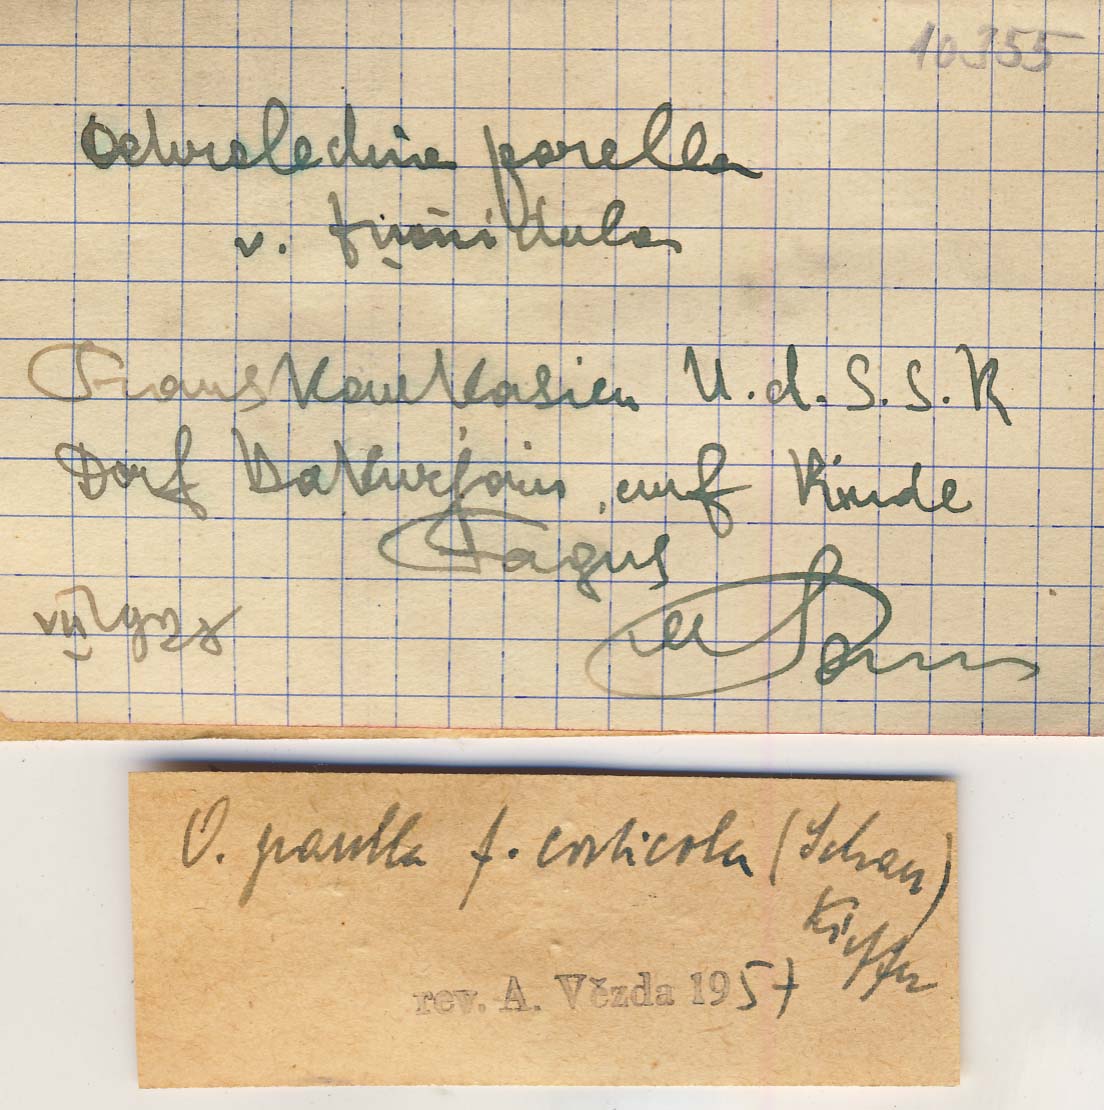 10355
Ochrolechia parella
v. tumidula
Transkaukasien U.d.S.S.R
Dorf Bakurjani, auf Rinde
Fagus
VII 192
O. parella f. corticola (Schaer)
Kieffer
rev. A. Vězda 1957